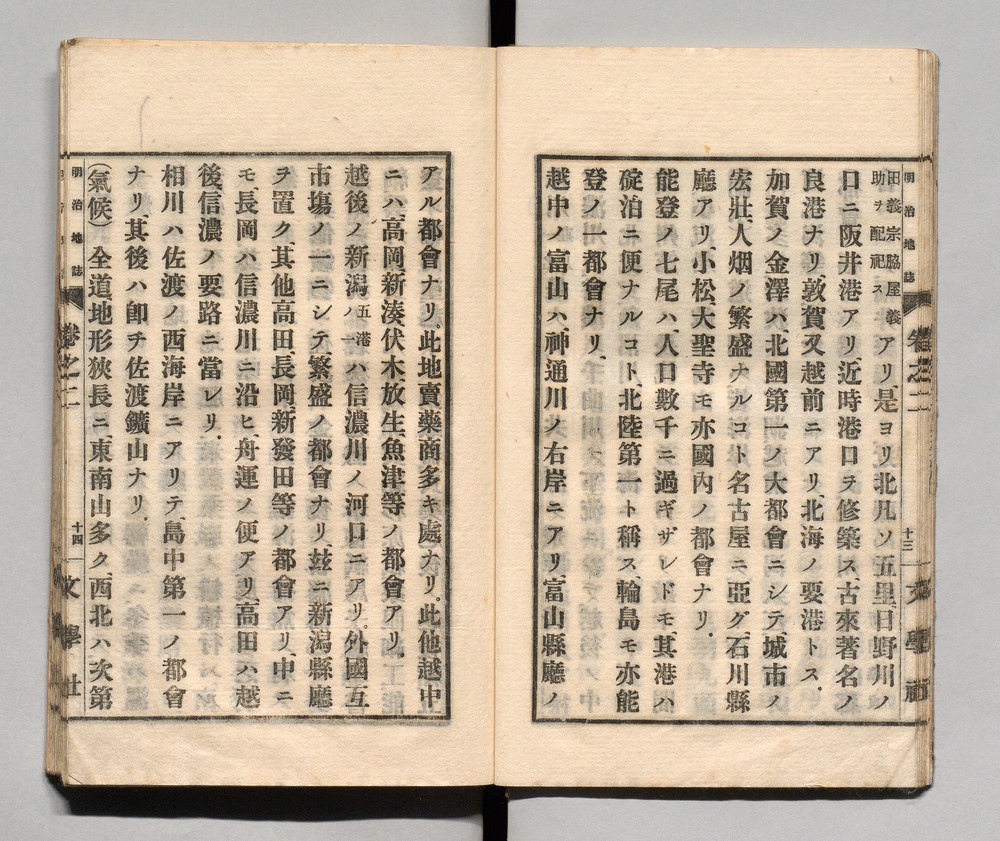 明治地誌 卷之二 十三 文學社
田義宗脇屋義
助ヲ配祀ス
アリ、是ヨリ北凡ソ五里、日野川ノ
口ニ阪井港アリ、近時港口ヲ修築ス、古來著名ノ
良港ナリ、敦賀又越前ニアリ、北海ノ要港トス.
加賀ノ金澤ハ、北國第一ノ大都會ニシテ、城市ノ
宏壯、人烟ノ繁盛ナルコト名古屋ニ亞グ、石川縣
廳アリ、小松、大聖寺モ亦國内ノ都會ナリ.
能登ノ七尾ハ、人口數千ニ過ギザレドモ、其港ハ
碇泊ニ便ナルコト、北陸第一ト稱ス、輪島モ亦能
登ノ一都會ナリ、
越中ノ富山ハ、神通川ノ右岸ニアリ、富山縣廳ノ
アル都會ナリ、此地賣藥商多キ處ナリ。此他越中
ニハ、高岡、新湊、伏木、放生、魚津等ノ都會アリ、
越後ノ新潟
五港
一
ハ信濃川ノ河口ニアリ。外國互
市塲ノ一ニシテ繁盛ノ都會ナリ、玆ニ新潟縣廳
ヲ置ク、其他高田、長岡、新發田等ノ都會アリ、中ニ
モ、長岡ハ信濃川ニ沿ヒ、舟運ノ便アリ、高田ハ越
後信濃ノ要路ニ當レリ.
相川ハ佐渡ノ西海岸ニアリテ、島中第一ノ都會
ナリ、其後ハ卽チ佐渡鑛山ナリ.
(氣候) 全道、地形狹長ニ、東南山多ク、西北ハ次第
明治地誌 卷之二 十四 文學社